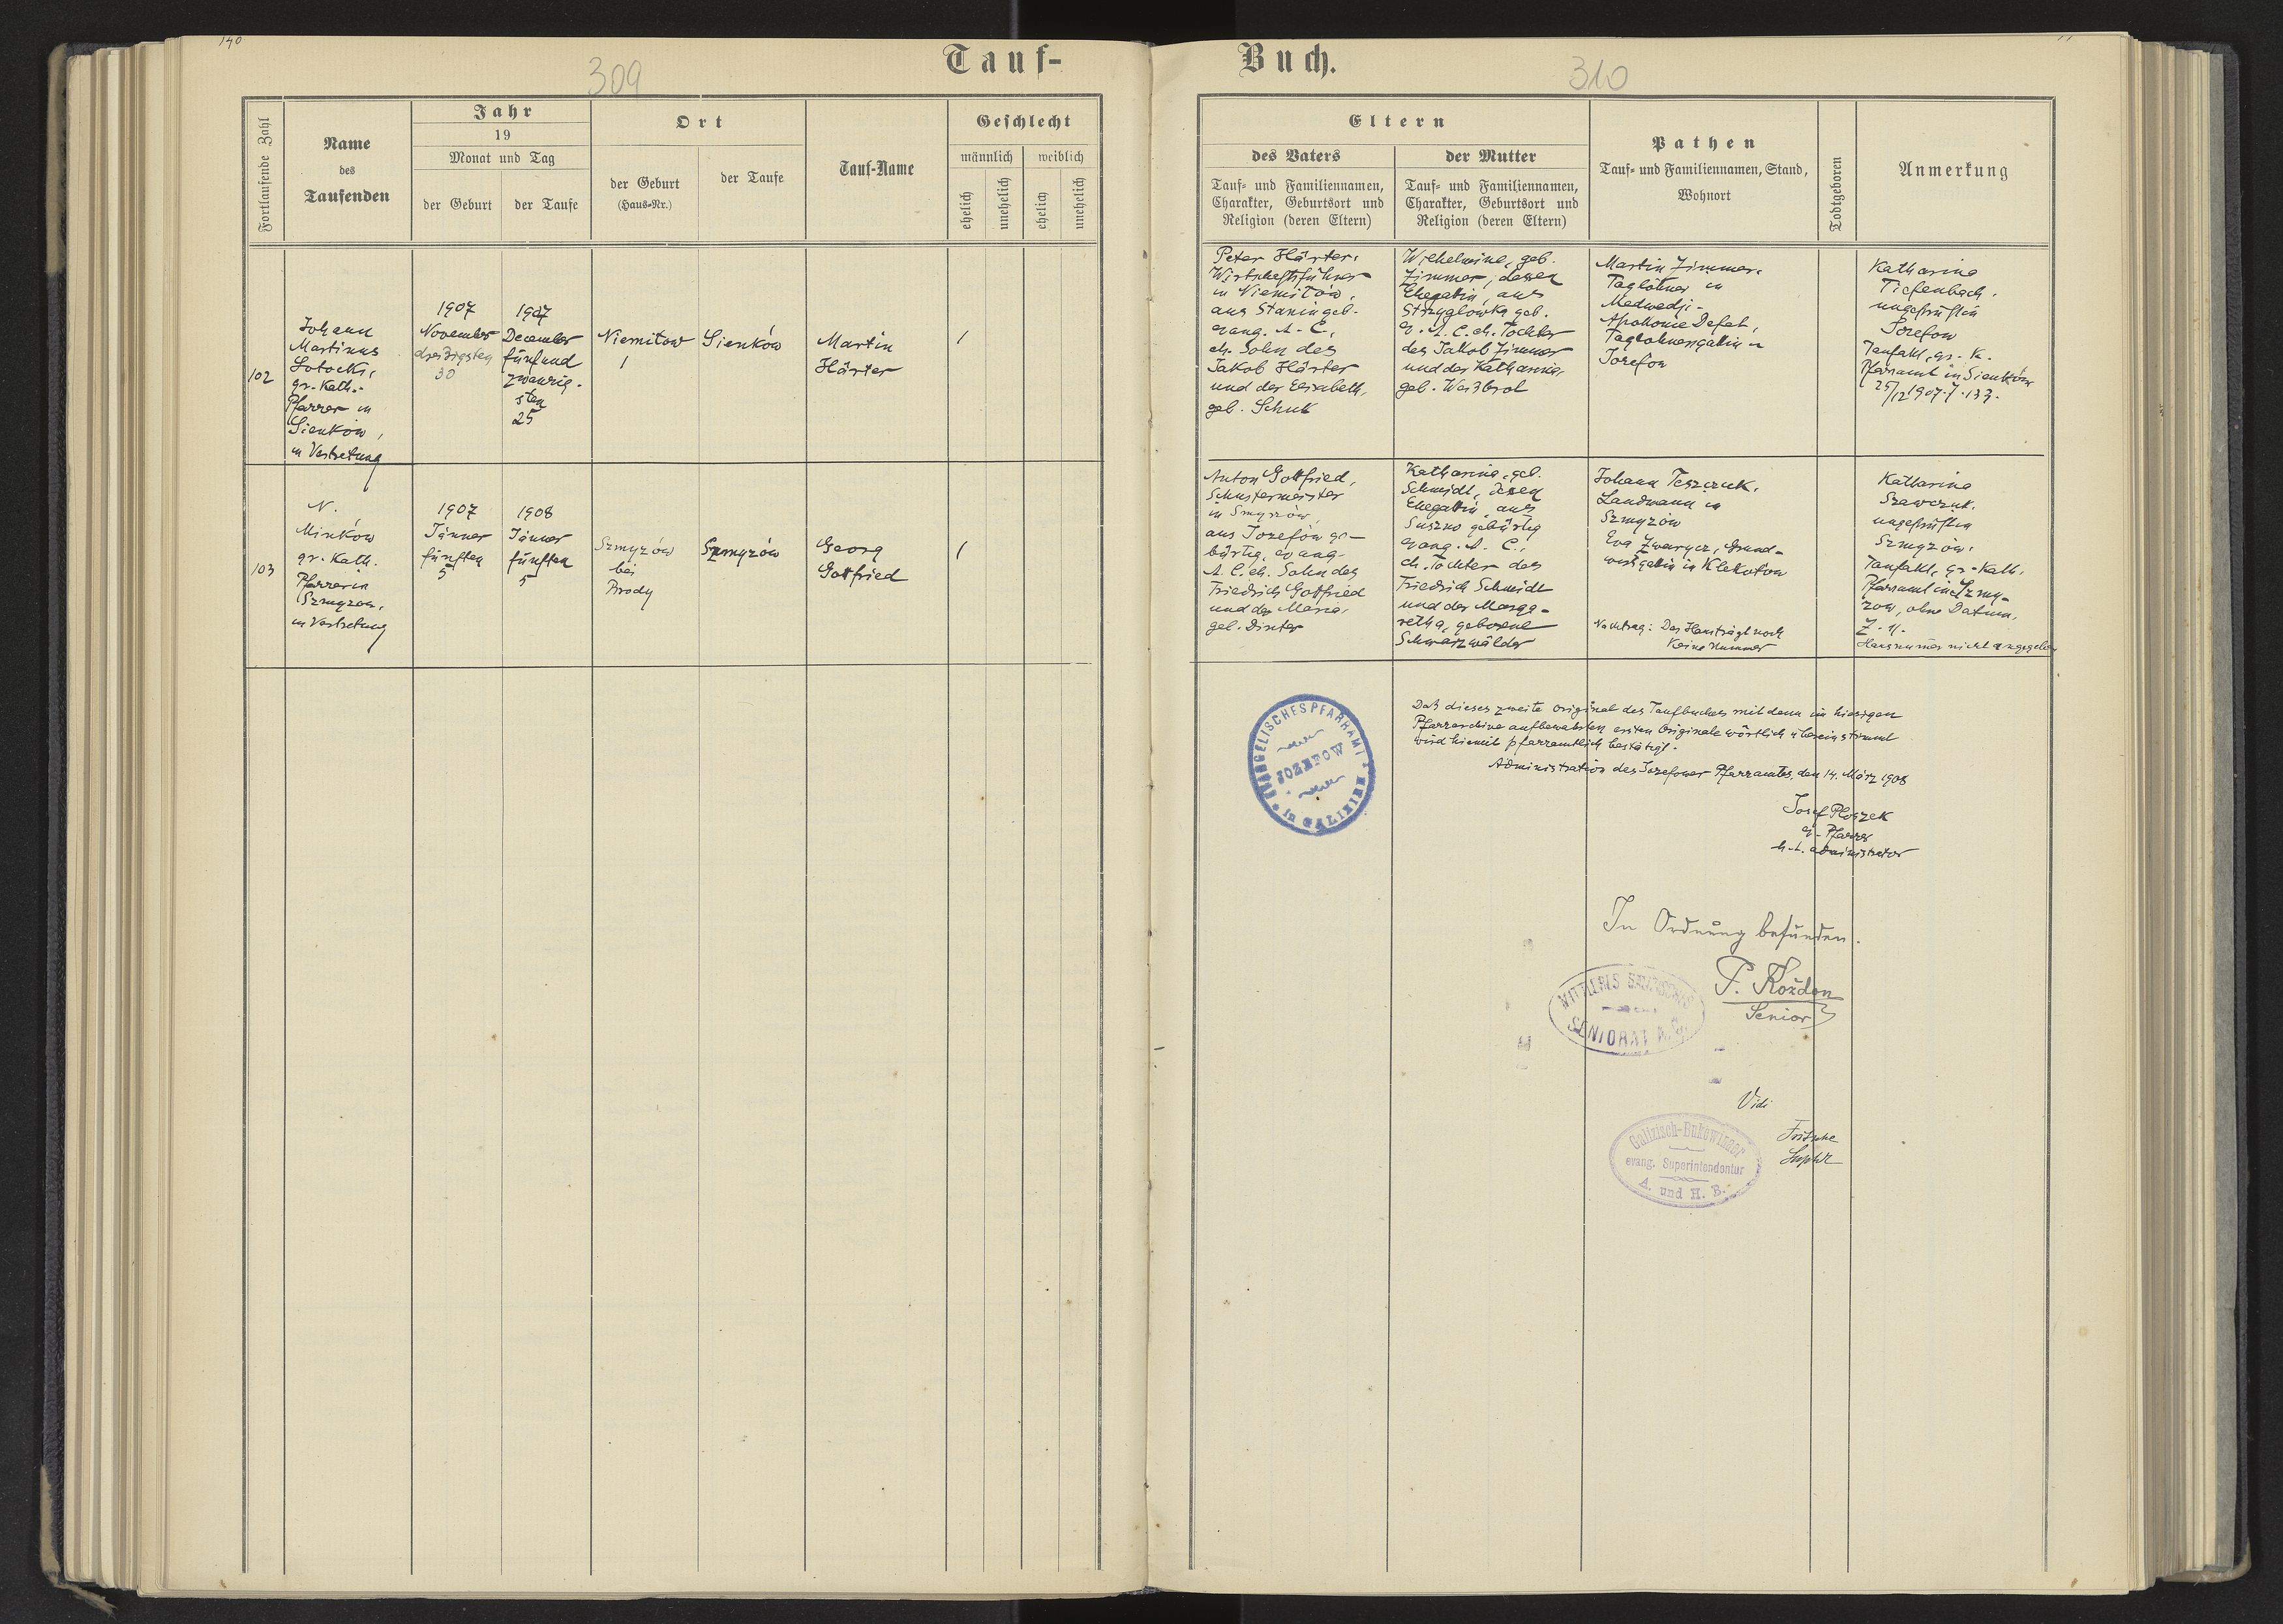 140
309
Tauf-
Fortlaufende Zahl
Name
des
Taufenden
Jahr
19
Monat und Tag
der Geburt
der Taufe
Ort
der Geburt
(Haus-Nr.)
der Taufe
Tauf-Name
Geschlecht
männlich
weiblich
ehelich
unehelich
ehelich
unehelich
102
Johann
Martinus
gr.-kath.-
Pfarrer in
Sienków,
in Vertretung
1907
November
dreißigsten
30
1907
December
fünfund
zwanzig-
sten
25
Niemitow
1
Sienków
Martin
Härter
1
103
N.
Minków
gr.-kath.
Pfarrer in
Szmyzow,
in Vertretung
1907
Jänner
fünften
5
1908
Jänner
fünften
5
Szmyzów
bei
Brody
Szmyzów
Georg
Gottfried
1
Buch.
310
Eltern
des Vaters
Tauf- und Familiennamen,
Charakter, Geburtsort und
Religion (deren Eltern)
der Mutter
Tauf- und Familiennamen,
Charakter, Geburtsort und
Religion (deren Eltern)
Pathen
Tauf- und Familiennamen, Stand,
Wohnort
Todtgeboren
Anmerkung
Peter Härter,
Wirtschaftsführer
in Niemitów,
aus Stanin geb.
evang. A. C.,
eh. Sohn des
Jakob Härter
und der Elisabeth,
geb. Schuk
Wilhelmine, geb.
Zimmer, dessen
Ehegattin, aus
Strzyglowka geb.
ev. A. C. eh. Tochter
des Jakob Zimmer
und der Katharina,
geb. Weißbrot
Martin Zimmer,
Taglöhner in
Medwedji-
Apollonie Defat,
Taglöhnersgattin in
Jozefow
Katharina
Tiefenbach,
ungeprüft in
Jozefow
Taufakt, gr.-k.
Pfarramt in Sienków
25/12 1907. Z. 133.
Anton Gottfried,
Schustermeister
in Smyzów,
aus Jozefów ge-
bürtig, evang.
A. C. eh. Sohn des
Friedrich Gottfried
und der Maria,
geb. Dinter
Katharina, geb.
Schmidt, dessen
Ehegattin, aus
Suszno gebürtig
evang. A. C.,
eh. Tochter des
Friedrich Schmidt
und der Marga-
retha, geborene
Schwarzwälder
Johann Teszczuk,
Landmann in
Szmyzow
Eva Zwarycz, Grund-
wirtsgattin in Klekotow
Nachtrag: Das Haus trägt noch
keine Nummer
Katharina
Szawczuk,
ungeprüft in
Szmyzów.
Taufakt, gr.-kath.
Pfarramt in Szmy-
zow, ohne Datum,
Z. 11.
Hausnummer nicht angegeben
EVANGELISCHES PFARRAMT
JOZEFOW
in GALIZIEN
Daß dieses zweite Original des Taufbuches mit dem im hiesigen
Pfarrarchive aufbewahrten ersten Originale wörtlich übereinstimmt
wird hiemit pfarramtlich bestätigt.
Administration des Jozefower Pfarramtes, den 14. März 1908
Josef Ploszek
ev. Pfarrer
h. t. Administrator
In Ordnung befunden.
P. Koždon
Senior
SENIORAT A.
Vidi
Fritsche
Suptdt
Galizisch-Bukowinaer
evang. Superintendentur
A. und H. B.